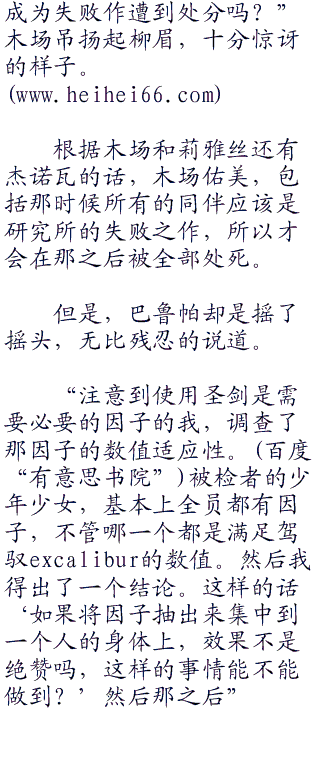 成为失败作遭到处分吗？”
木场吊扬起柳眉，十分惊讶
的样子。
(www.heihei66.com)
根据木场和莉雅丝还有
杰诺瓦的话，木场佑美，包
括那时候所有的同伴应该是
研究所的失败之作，所以才
会在那之后被全部处死。
但是，巴鲁帕却是摇了
摇头，无比残忍的说道。
“注意到使用圣剑是需
要必要的因子的我，调查了
那因子的数值适应性。(百度
“有意思书院”)被检者的少
年少女，基本上全员都有因
子，不管哪一个都是满足驾
驭excalibur的数值。然后我
得出了一个结论。这样的话
‘如果将因子抽出来集中到
一个人的身体上，效果不是
绝赞吗，这样的事情能不能
做到？’然后那之后”